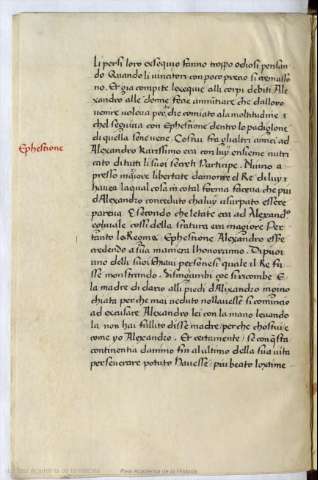 li persi loro exsequio fanno troppo odiosi pensan
do Quando li uincitori con poco preno si cremasse
no. Et gia compite le exequie alli corpi debiti Ale
xandro alle donne fece annunciare che dalloro
uenire uoleua per che comiato ala moltitudine
chel seguiua con Ephestione dentro lo padiglone
di quella sene uene. Costui fra gli altri amici ad
Alexandro Karissimo era con luy insieme nutri
cato di tuti li suoi secreti Participe. Niuno a
presso maiore libertate damonire el Re di luy
haueua laqual cosa in cotal forma faceua che piu
d'Alexandro conceduto cha luy usurpato essere
pareua E secondo che letate era ad Alexandro
coliuale cossi della statura era magiore Per
tanto la Regina Ephestione Alexandro esse
credendo a sua maniera lhonororno. Dipoi
uno delli suoi
sse monstrando. Sisingambi
la madre di dario alli piedi d'Alixandro
chiata per che mai ueduto nollauesse si comincio
ad excusare Alexandro lei con la mano leuando
la non hai fallito disse madre, per che chostui e
come yo Alexandro. Et certamente se con questa
continentia danimo fin al ultimo della sua uita
perseuerare potuto hauesse piu beato
Ephestione
Real Academia de la Historia